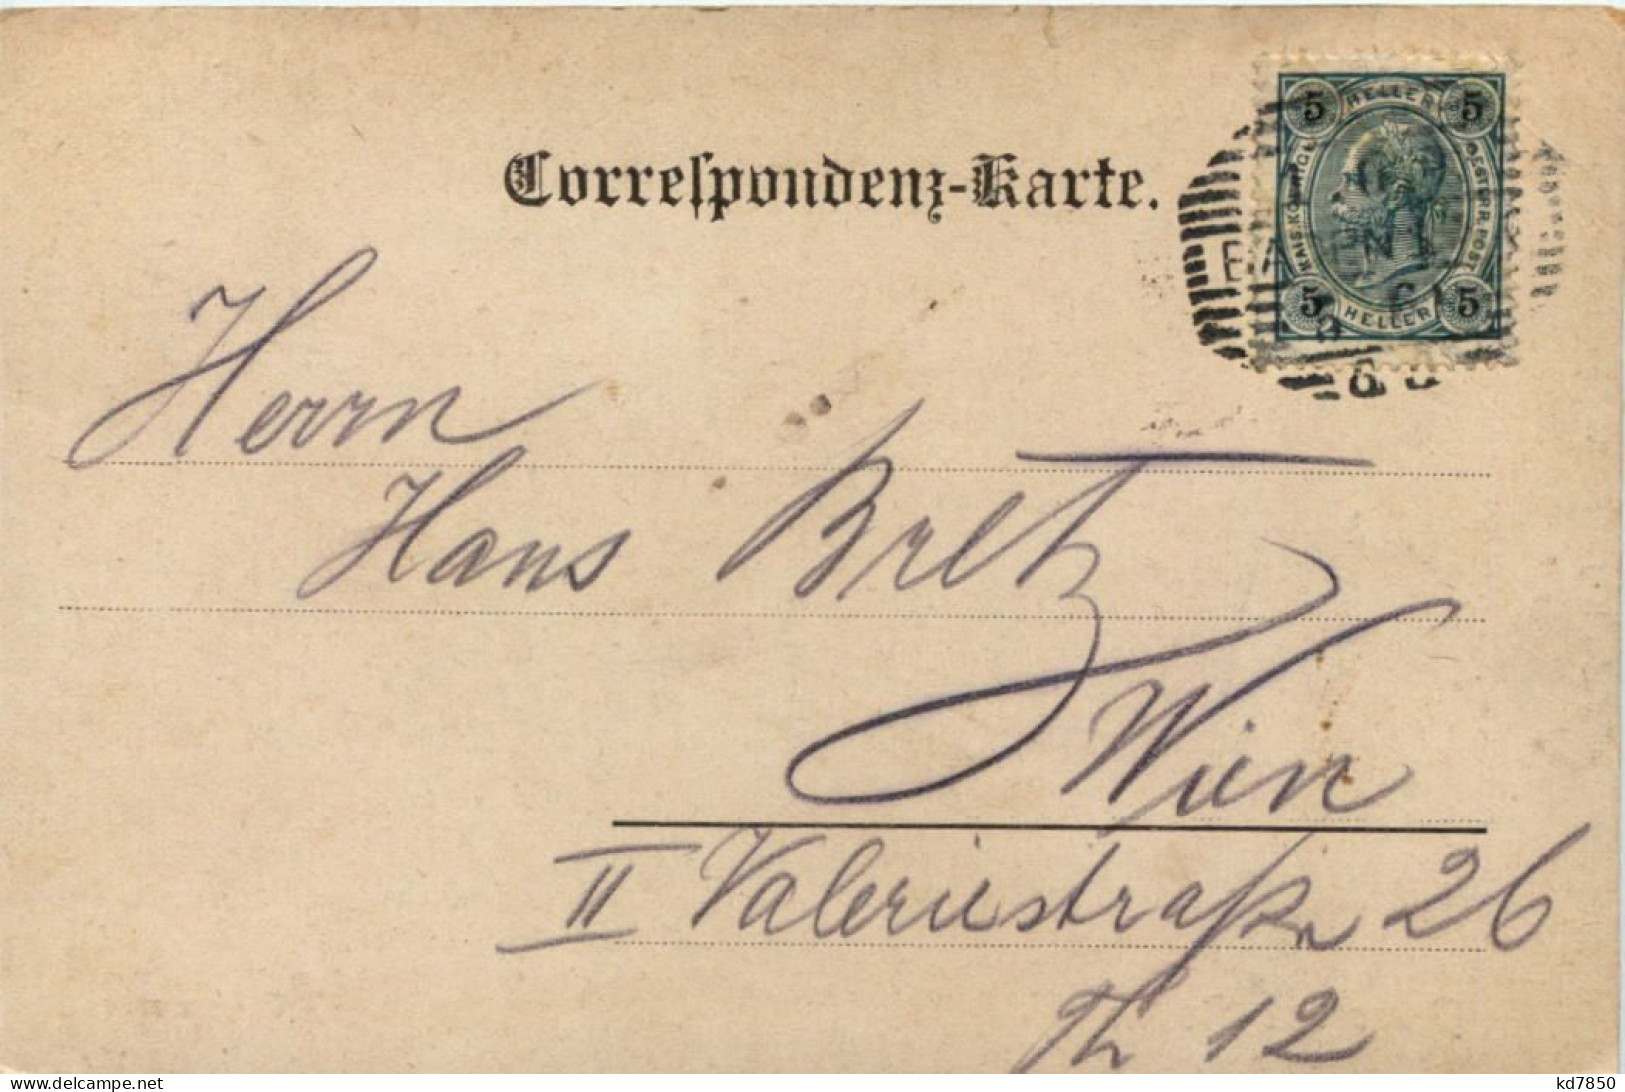 Correspondenz-Karte.
5 HELLER 5
KAIS. KÖNIGL. OESTERR. POST
5 HELLER 5
Herrn
Hans Bretz
Wien
II Valeriestraße 26
Th 12
www.delcampe.net
kd7850